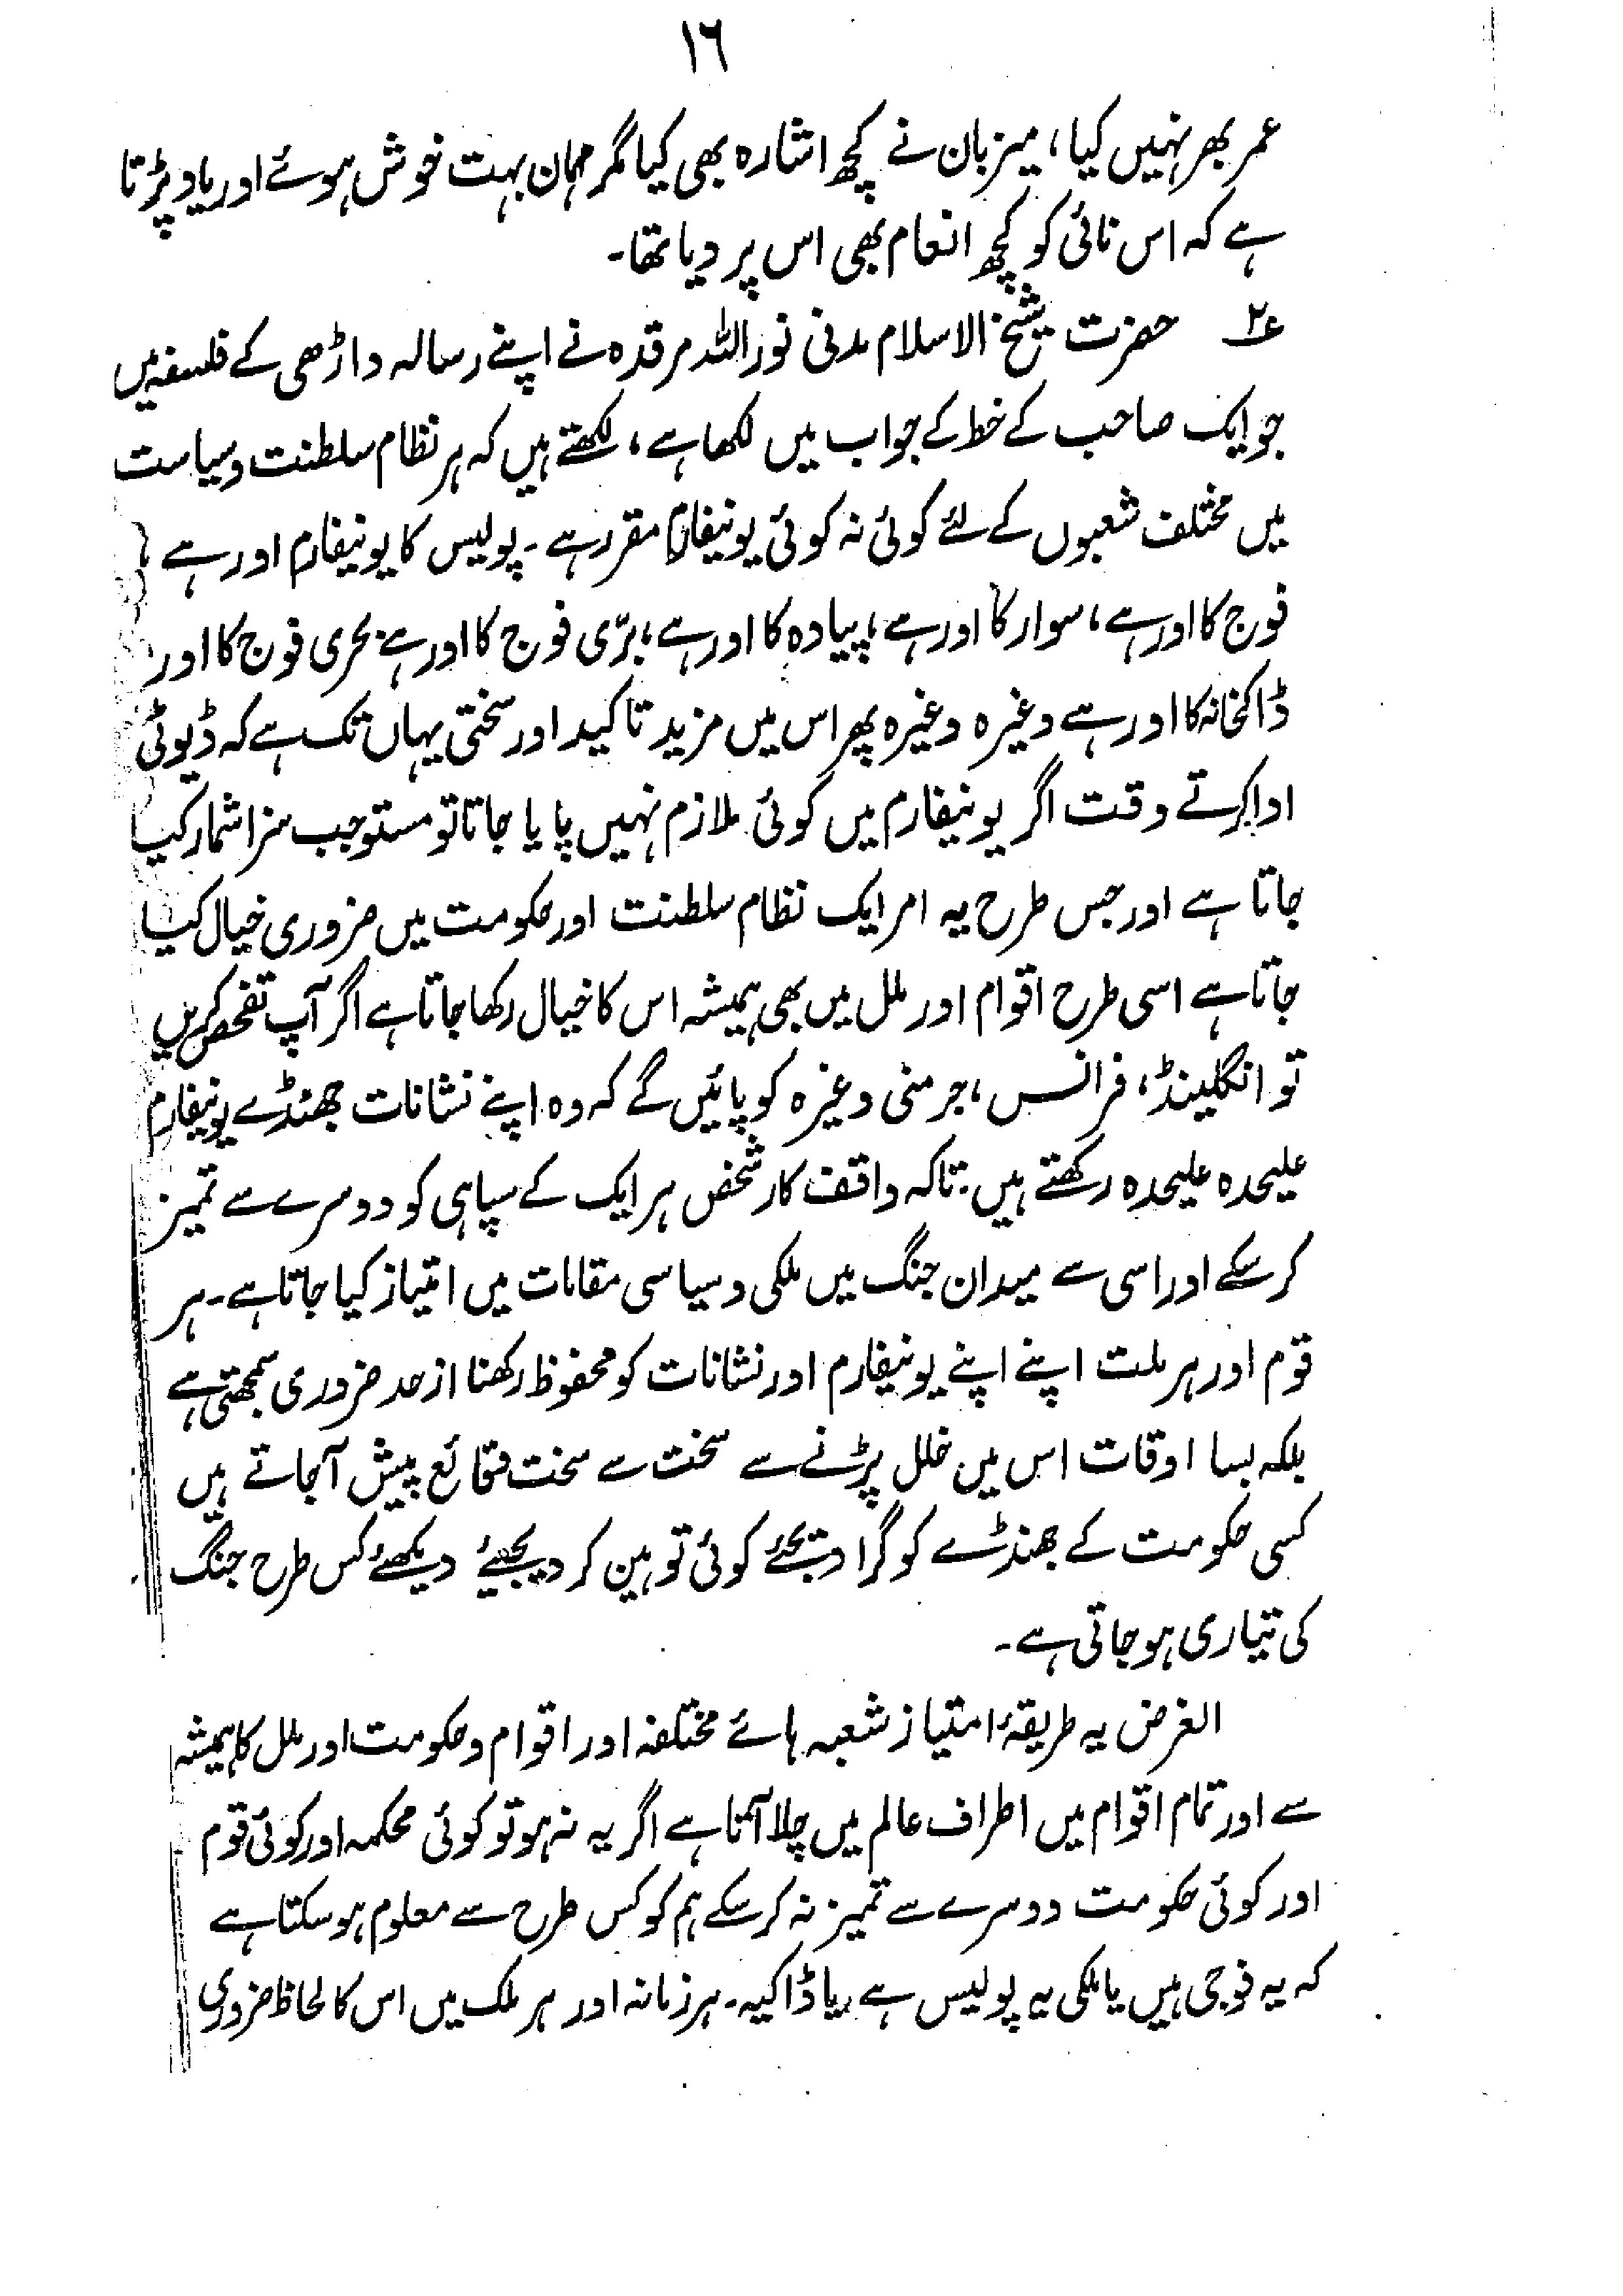 ١٦
عمر بھر نہیں کیا، میزبان نے کچھ اشارہ بھی کیا مگر مہمان بہت خوش ہوئے اور یاد پڑتا
ہے کہ اس نائی کو کچھ انعام بھی اس پر دیا تھا۔
۲؏ حضرت شیخ الاسلام مدنی نور اللہ مرقدہ نے اپنے رسالہ داڑھی کے فلسفہ میں
جو ایک صاحب کے خط کے جواب میں لکھا ہے، لکھتے ہیں کہ ہر نظام سلطنت و سیاست
میں مختلف شعبوں کے لئے کوئی نہ کوئی یونیفارم مقرر ہے۔ پولیس کا یونیفارم اور ہے
فوج کا اور ہے، سوار کا اور ہے، پیادہ کا اور ہے، برّی فوج کا اور ہے بحری فوج کا اور
ڈاکخانہ کا اور ہے وغیرہ وغیرہ پھر اس میں مزید تاکید اور سختی یہاں تک ہے کہ ڈیوٹی
ادا کرتے وقت اگر یونیفارم میں کوئی ملازم نہیں پایا جاتا تو مستوجب سزا شمار کیا
جاتا ہے اور جس طرح یہ امر ایک نظام سلطنت اور حکومت میں ضروری خیال کیا
جاتا ہے اسی طرح اقوام اور ملل میں بھی ہمیشہ اس کا خیال رکھا جاتا ہے اگر آپ تفحص کریں
تو انگلینڈ، فرانس، جرمنی وغیرہ کو پائیں گے کہ وہ اپنے نشانات جھنڈے یونیفارم
علیحدہ علیحدہ رکھتے ہیں۔ تاکہ واقف کار شخص ہر ایک کے سپاہی کو دوسرے سے تمیز
کر سکے اور اسی سے میدان جنگ میں ملکی و سیاسی مقامات میں امتیاز کیا جاتا ہے۔ ہر
قوم اور ہر ملت اپنے اپنے یونیفارم اور نشانات کو محفوظ رکھنا از حد ضروری سمجھتی ہے
بلکہ بسا اوقات اس میں خلل پڑنے سے سخت سے سخت وقائع پیش آجاتے ہیں
کسی حکومت کے جھنڈے کو گرا دیجئے کوئی توہین کر دیجئے دیکھئے کس طرح جنگ
کی تیاری ہو جاتی ہے۔
الغرض یہ طریقۂ امتیاز شعبہ ہائے مختلفہ اور اقوام و حکومت اور ملل کا ہمیشہ
سے اور تمام اقوام میں اطراف عالم میں چلا آتا ہے اگر یہ نہ ہو تو کوئی محکمہ اور کوئی قوم
اور کوئی حکومت دوسرے سے تمیز نہ کر سکے ہم کو کس طرح سے معلوم ہو سکتا ہے
کہ یہ فوجی ہیں یا ملکی یہ پولیس ہے یا ڈاکیہ۔ ہر زمانہ اور ہر ملک میں اس کا لحاظ ضروری